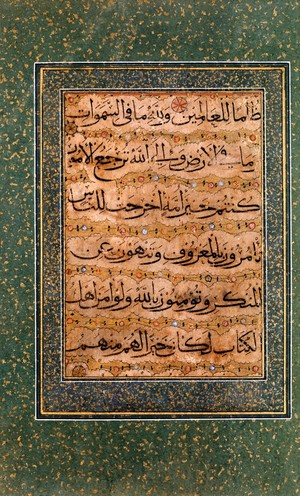 ظلما للعالمين ولله ما في السموات
وما في الارض والى الله ترجع الامور
كنتم خير امة اخرجت للناس
تامرون بالمعروف وتنهون عن
المنكر وتؤمنون بالله ولو امن اهل
الكتاب لكان خيرا لهم منهم